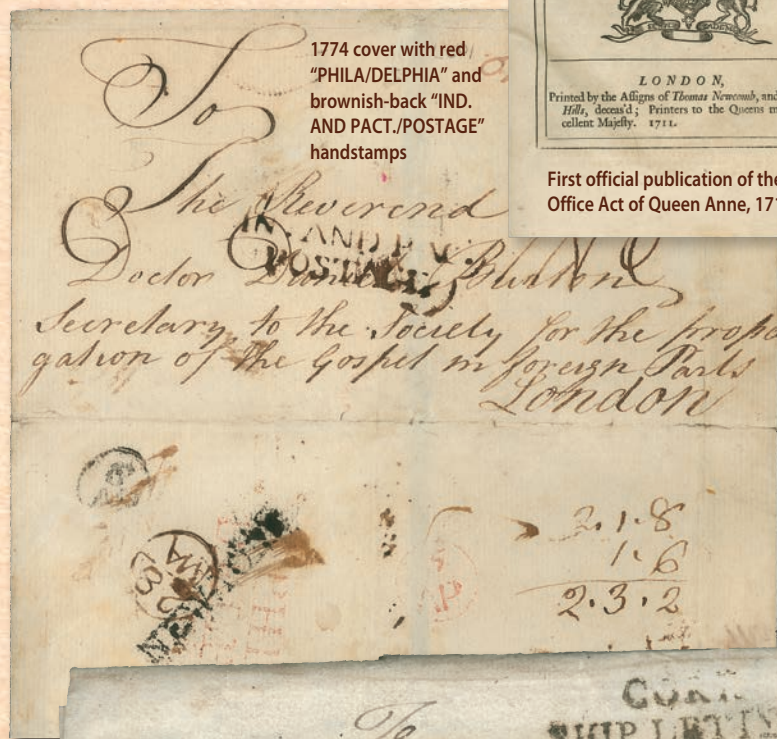 1774 cover with red
“PHILA/DELPHIA” and
brownish-back “IND.
AND PACT./POSTAGE”
handstamps
LONDON,
Printed by the Assigns of Thomas Newcomb, and
Hills, deceas'd; Printers to the Queens m
cellent Majesty. 1711.
First official publication of the
Office Act of Queen Anne, 171
To
The Reverend
IN. AND PAC
POSTAGE
Doctor Burton
Secretary to the Society for the propa
gation of the Gospel in foreign Parts
London
2.1.8
1.6
2.3.2
NEW YORK
AP
To
SHIP LETT